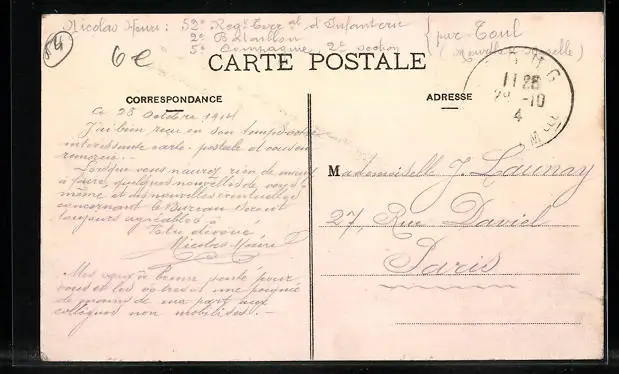 Nicolas Henri: 52e Regt Terr al d'Infanterie
2e Bataillon
5e Compagnie, 2e section
par Toul
(Meurthe et Moselle)
54
6€
CARTE POSTALE
11 28
28-10
4
CORRESPONDANCE
ADRESSE
Ce 28 Octobre 1914
J'ai bien reçu en son temps votre
intéressante carte-postale et vous en
remercie.
Lorsque vous n'aurez rien de mieux
à faire, quelques nouvelles de vous-
même et des nouvelles
concernant le Bureau seront
toujours agréables à
Votre dévoué
Nicolas Henri
Mes vœux de bonne santé pour
vous et les vôtres et une poignée
de mains de ma part aux
collègues non mobilisés.-
Mademoiselle J. Launay
27, Rue David
Paris